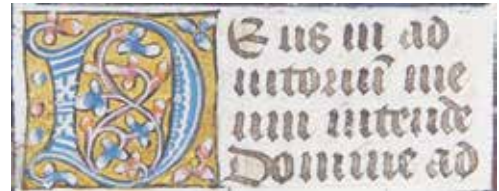 DEus in ad
iutoriū me
um intende
Domine ad